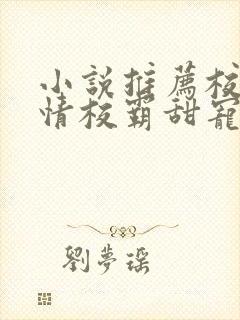 小說推薦校
情校霸甜寵
劉夢瑶